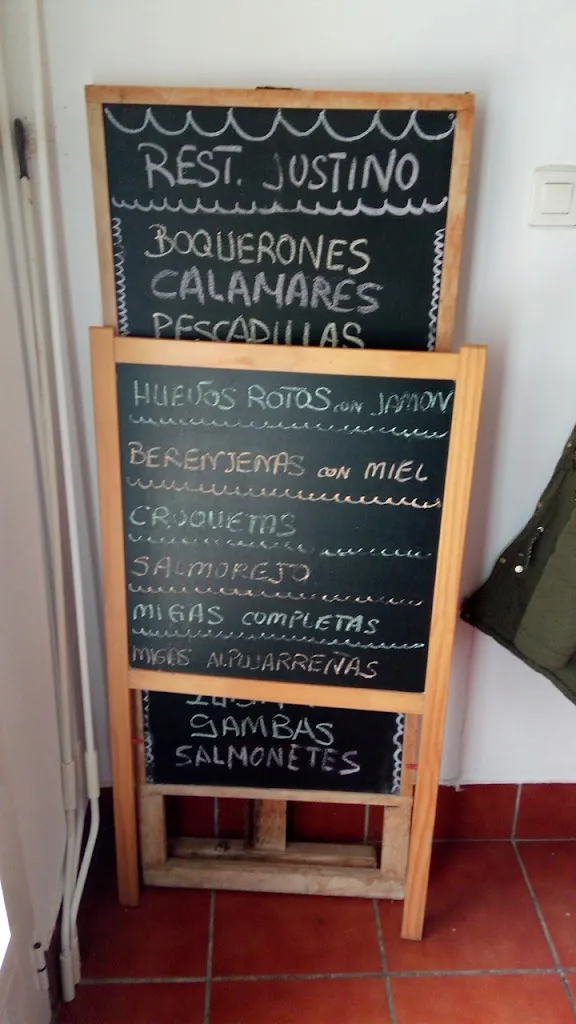 REST. JUSTINO
BOQUERONES
CALAMARES
PESCADILLAS
HUEVOS ROTOS CON JAMON
BERENJENAS CON MIEL
CROQUETAS
SALMOREJO
MIGAS COMPLETAS
MIGAS ALPUJARREÑAS
GAMBAS
SALMONETES